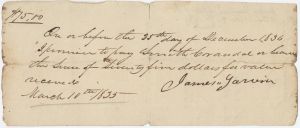 $75.00
On or before the 25th day of December 1836
I promise to pay Smith Crandal or bearer
the Sum of Seventy five dollars for value
received
March 10th 1835
James Garvin